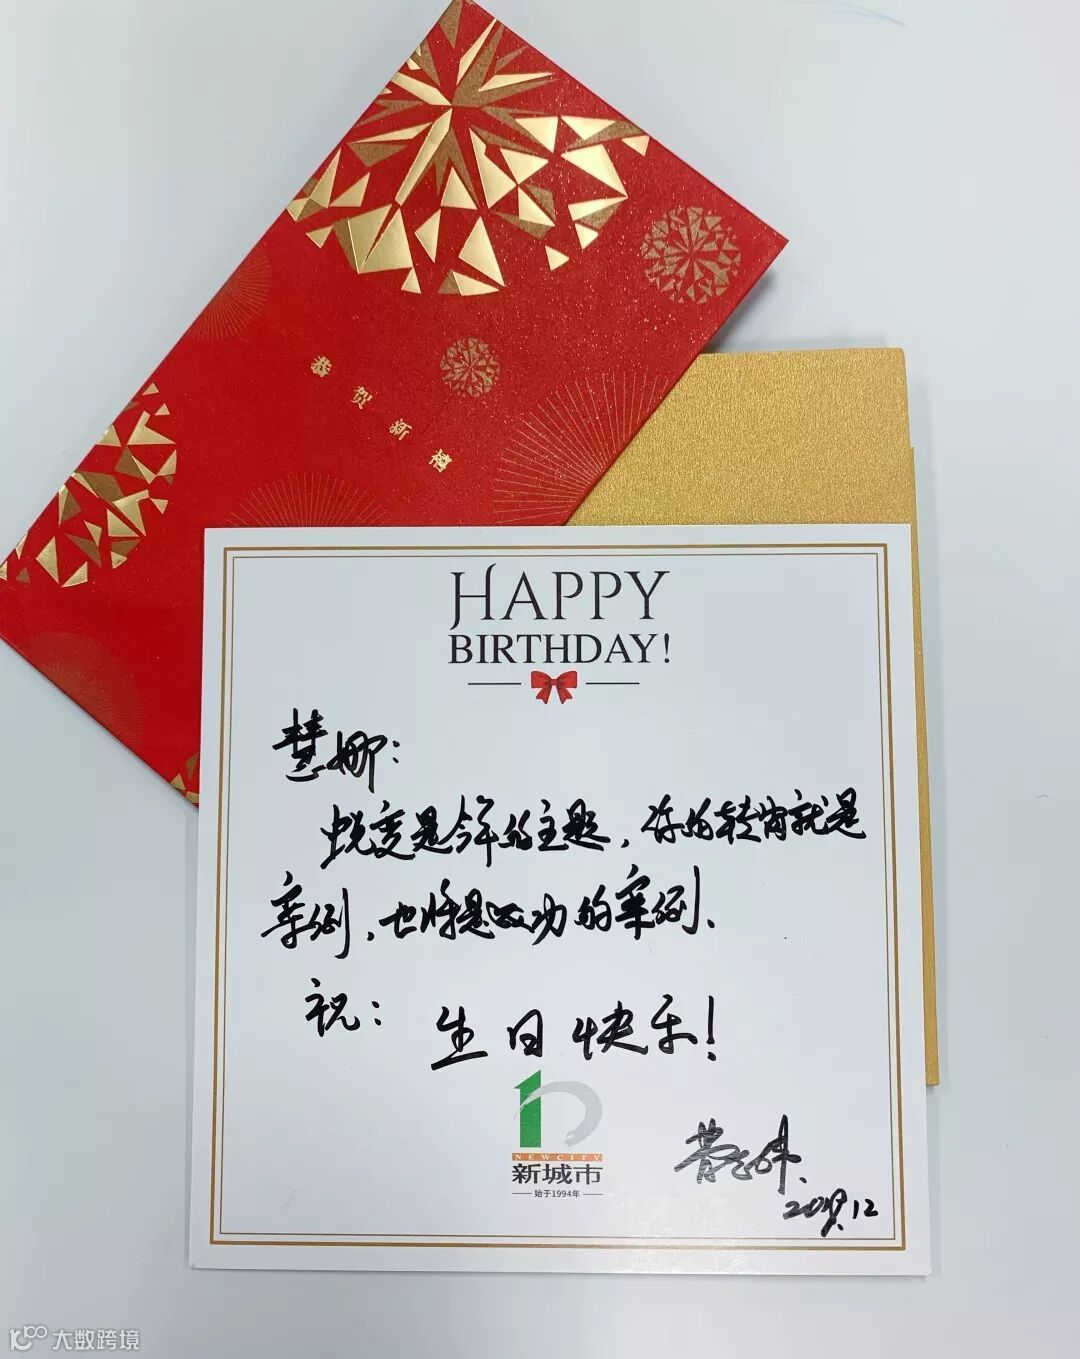 恭贺新禧
HAPPY
BIRTHDAY!
慧娜：
蜕变是今年的主题，你的转岗就是
案例，也将是成功的案例、
祝：生日快乐！
NEWCITY
新城市
始于1994年
12
大数跨境